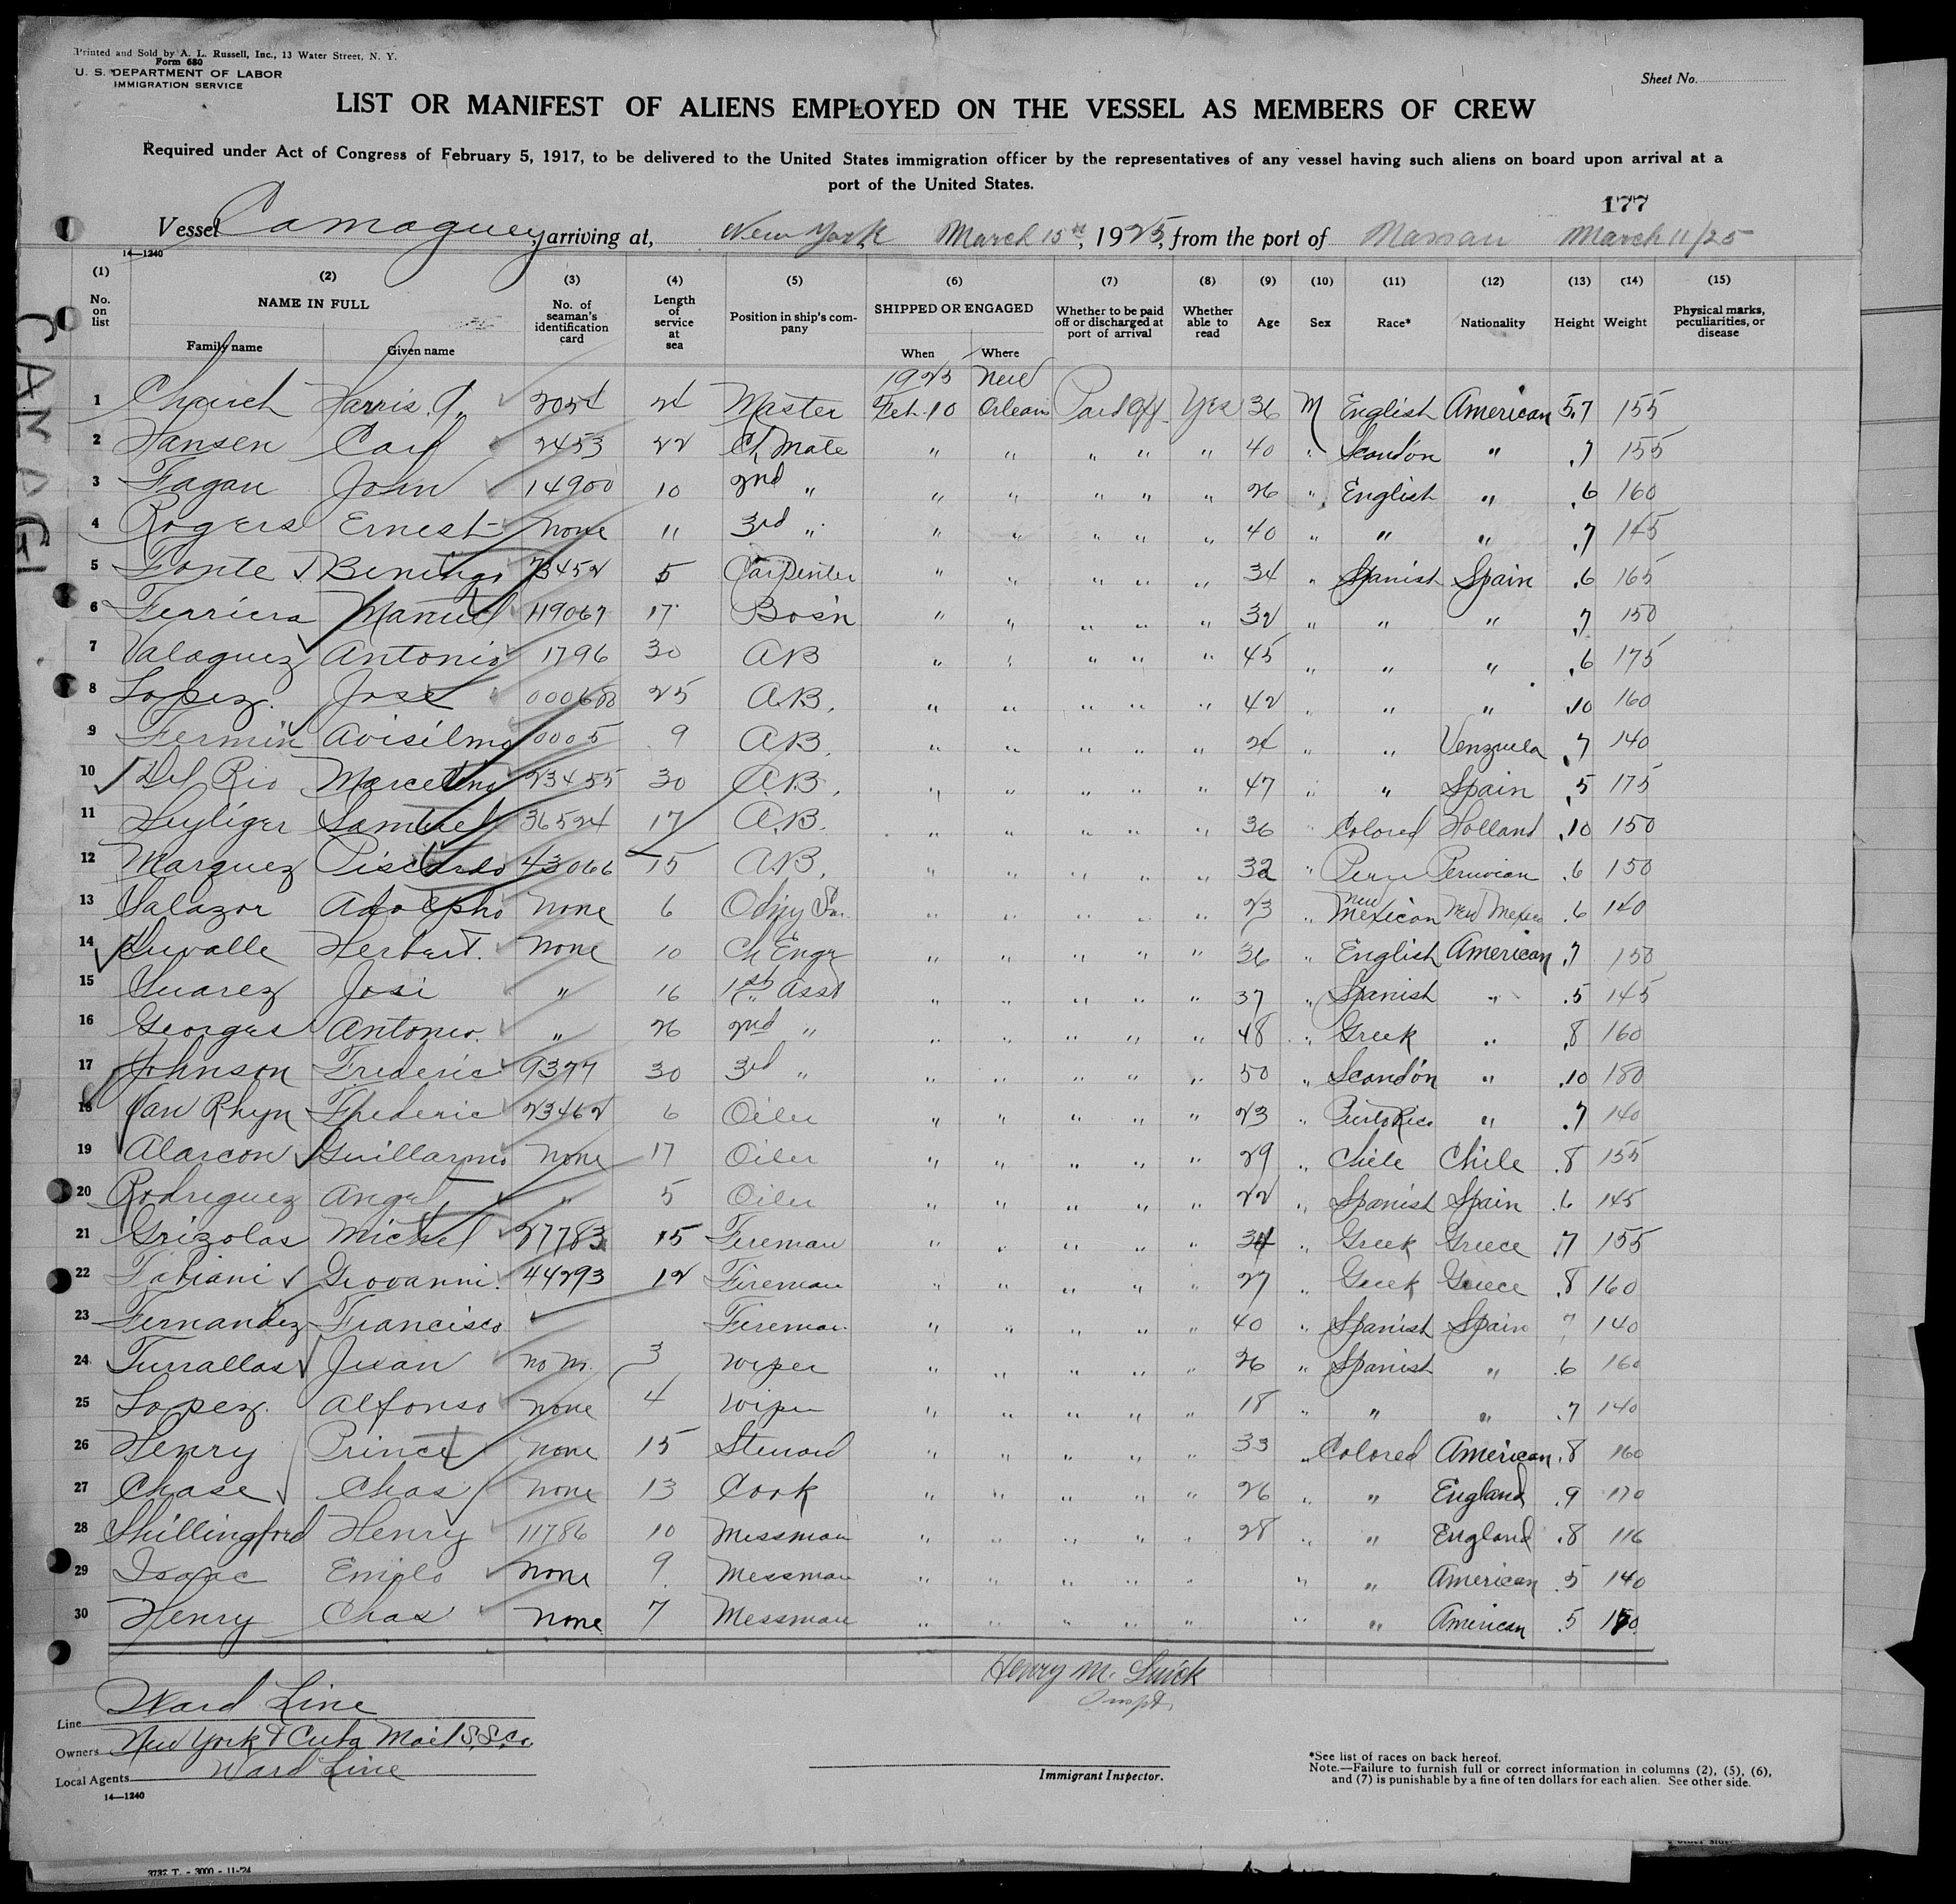 Printed and Sold by A. L. Russell, Inc., 13 Water Street, N. Y.
Form 680
U. S. DEPARTMENT OF LABOR
IMMIGRATION SERVICE
Sheet No.
LIST OR MANIFEST OF ALIENS EMPLOYED ON THE VESSEL AS MEMBERS OF CREW
Required under Act of Congress of February 5, 1917, to be delivered to the United States immigration officer by the representatives of any vessel having such aliens on board upon arrival at a
port of the United States.
177
Vessel Camaguey, arriving at, New York March 15th, 1925, from the port of Nassau March 11/25
14—1240
(1) (2) (3) (4) (5) (6) (7) (8) (9) (10) (11) (12) (13) (14) (15)
No. on list NAME IN FULL Family name Given name No. of seaman's identification card Length of service at sea Position in ship's company SHIPPED OR ENGAGED When Where Whether to be paid off or discharged at port of arrival Whether able to read Age Sex Race* Nationality Height Weight Physical marks, peculiarities, or disease
1925 New
1 Church Harris. 2024 24 Master Feb. 10 Orleans Paid Off Yes 36 M English American 5.7 155
2 Hansen Carl 2453 22 Ch Mate " " " " " 40 " Scand'n " .7 155
3 Fagan John 14900 10 2nd " " " " " " 26 " English " .6 160
4 Rogers Ernest none 11 3rd " " " " " " 40 " " " .7 145
5 Fonte Beningo 73452 5 Carpenter " " " " " 34 " Spanish Spain .6 165
6 Ferriera Manuel 119067 17 Bos'n " " " " " 32 " " " .7 150
7 Valaquez Antonio 1796 30 AB " " " " " 45 " " " .6 175
8 Lopez. Jose 25 A.B. " " " " " 42 " " " .10 160
9 Fermin Avisilmo 0005 9 A.B. " " " " " 24 " " Venzuela .7 140
10 Del Rio Marcelino 23455 30 A.B. " " " " " 47 " " Spain .5 175
11 Heyliger Samuel 36524 17 A.B. " " " " " 36 " Colored Holland .10 150
12 Marquez 43066 15 A.B. " " " " " 32 " Peru Peruvian .6 150
13 Salazar Adolpho none 6 " " " " " 23 " New Mexican New Mexico .6 140
14 Duvalle Herbert. none 10 Ch Engr " " " " " 36 " English American .7 150
15 Suarez Josi " 16 1st Asst " " " " " 37 " Spanish " .5 145
16 Georges Antonio. " 26 2nd " " " " " " 48 " Greek " .8 160
17 Johnson Frederic 9377 30 3rd " " " " " " 50 " Scand'n " .10 180
18 Van Rhyn Frederic 23462 6 Oiler " " " " " 23 " Puerto Rico " .7 140
19 Alarcon Guillarmo none 17 Oiler " " " " " 29 " Chile Chile .8 155
20 Rodriguez Angel " 5 Oiler " " " " " 22 " Spanish Spain .6 145
21 Grizolas Michel 27783 15 Fireman " " " " " 34 " Greek Greece .7 155
22 Tabiani Giovanni. 44293 12 Fireman " " " " " 27 " Greek Greece .8 160
23 Fernandez Francisco Fireman " " " " " 40 " Spanish Spain 7 140
24 Turrallas Juan 3 wiper " " " " " 26 " Spanish " .6 160
25 Lopez. Alfonso none 4 wiper " " " " " 18 " " " .7 140
26 Henry Prince none 15 Steward " " " " " 33 " Colored American .8 160
27 Chase Chas none 13 Cook " " " " " 26 " " England .9 170
28 Shillingford Henry 11786 10 Messman " " " " " 28 " " England .8 116
29 Isaac Emilo none 9 Messman " " " " " " " American .5 140
30 Henry Chas none 7 Messman " " " " " " " American .5
Henry M. Quick
Inspt.
Line Ward Line
Owners New York & Cuba Mail S.S. Co.
Local Agents Ward Line
14—1240
Immigrant Inspector.
*See list of races on back hereof.
Note.—Failure to furnish full or correct information in columns (2), (5), (6),
and (7) is punishable by a fine of ten dollars for each alien. See other side.
3737 T. - 3000 - 11-'24